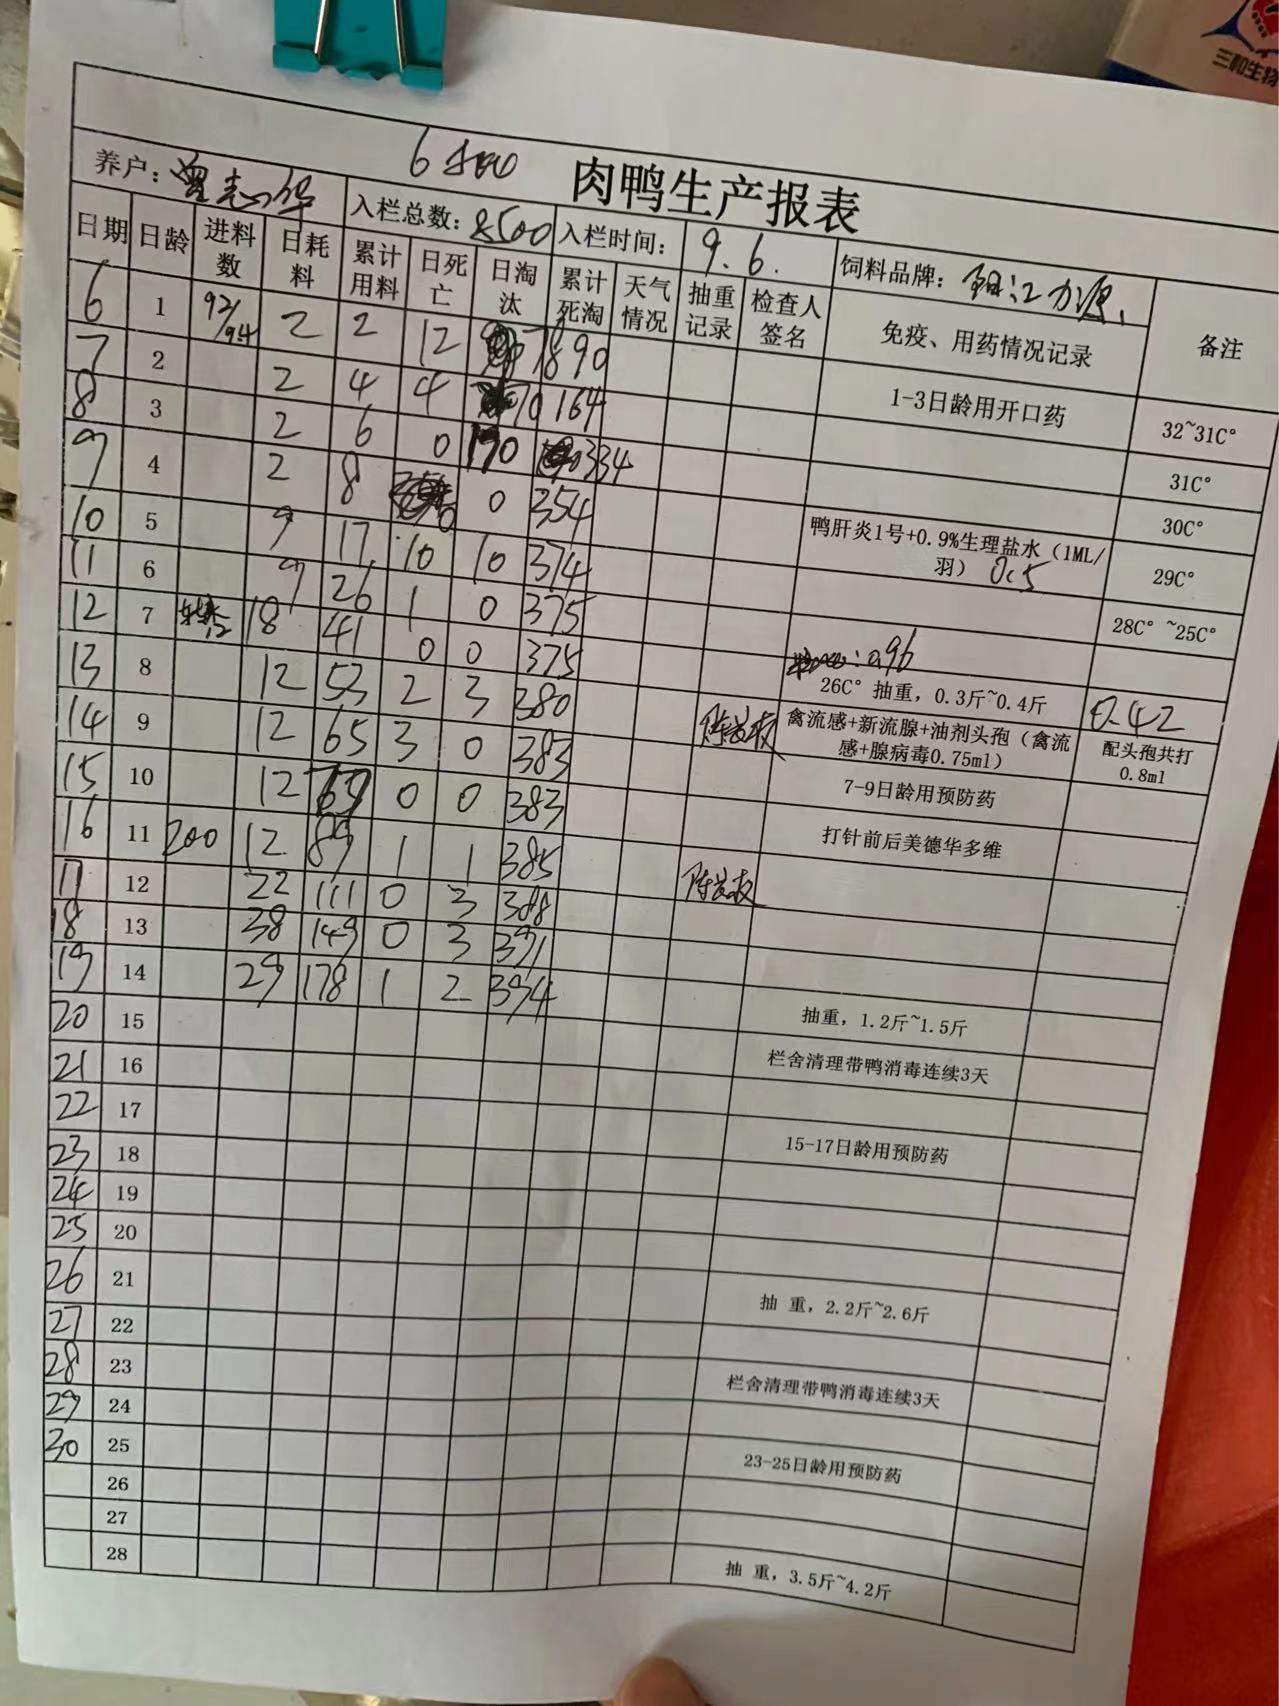 三和生物
肉鸭生产报表
养户： 曾志华 入栏总数： 8500 入栏时间： 9.6. 饲料品牌：
日期 日龄 进料数 日耗料 累计用料 日死亡 日淘汰 累计死淘 天气情况 抽重记录 检查人签名 免疫、用药情况记录 备注
6 1 92/94 2 2 12 78 90 1-3日龄用开口药 32~31C°
7 2 2 4 4 70 164 31C°
8 3 2 6 0 170 334 30C°
9 4 2 8 0 354 鸭肝炎1号+0.9%生理盐水（1ML/羽） 0.5 29C°
10 5 9 17 10 10 374 28C°~25C°
11 6 9 26 1 0 375
12 7 18 41 0 0 375 : 0.96 26C°抽重，0.3斤~0.4斤 0.42
13 8 12 53 2 3 380 禽流感+新流腺+油剂头孢（禽流感+腺病毒0.75ml） 配头孢共打0.8ml
14 9 12 65 3 0 383 7-9日龄用预防药
15 10 12 0 0 383 打针前后美德华多维
16 11 200 12 89 1 1 385
17 12 22 111 0 3 388
18 13 38 149 0 3 391
19 14 29 178 1 2 394 抽重，1.2斤~1.5斤
20 15 栏舍清理带鸭消毒连续3天
21 16
22 17 15-17日龄用预防药
23 18
24 19
25 20
26 21 抽 重，2.2斤~2.6斤
27 22
28 23 栏舍清理带鸭消毒连续3天
29 24
30 25 23-25日龄用预防药
26
27
28 抽 重，3.5斤~4.2斤